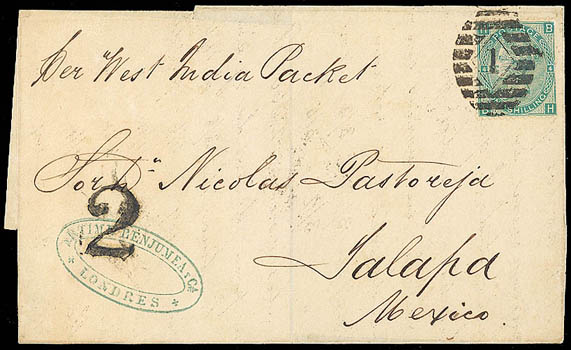 Per "West India Packet
Sor Dn Nicolas Pastoreja
Jalapa
Mexico.
2
BENJUMEA Y Ca
* LONDRES *
POSTAGE
SHILLING
H B
B H
1